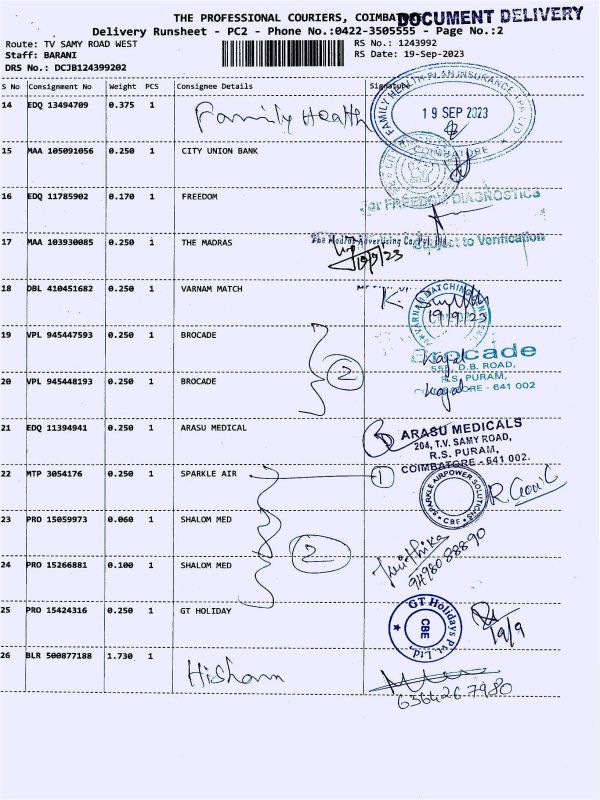 THE PROFESSIONAL COURIERS, COIMBATO
DOCUMENT DELIVERY
Delivery Runsheet - PC2 - Phone No.:0422-3505555 - Page No.:2
Route: TV SAMY ROAD WEST
Staff: BARANI
DRS No.: DCJB124399202
RS No.: 1243992
RS Date: 19-Sep-2023
S No Consignment No Weight PCS Consignee Details Signature
14 EDQ 13494709 0.375 1 Family Health
FAMILY HEALTH PLAN INSURANCE TPA LTD
19 SEP 2023
COIMBATORE
15 MAA 105091056 0.250 1 CITY UNION BANK
16 EDQ 11785902 0.170 1 FREEDOM
For FREEDOM DIAGNOSTICS
17 MAA 103930085 0.250 1 THE MADRAS
The Madras Advertising Co. Pvt. Ltd.
Subject to Verification
19/9/23
18 DBL 410451682 0.250 1 VARNAM MATCH
K.
VARNAM MATCHING
19/9/23
19 VPL 945447593 0.250 1 BROCADE
Brocade
Kajal
555, D.B. ROAD,
R.S. PURAM,
COIMBATORE - 641 002
20 VPL 945448193 0.250 1 BROCADE
2
Kajal
21 EDQ 11394941 0.250 1 ARASU MEDICAL
ARASU MEDICALS
204, T.V. SAMY ROAD,
R.S. PURAM,
COIMBATORE - 641 002.
22 MTP 3054176 0.250 1 SPARKLE AIR
1
SPARKLE AIRPOWER SOLUTIONS
CBE
23 PRO 15059973 0.060 1 SHALOM MED
2
24 PRO 15266881 0.100 1 SHALOM MED
25 PRO 15424316 0.250 1 GT HOLIDAY
GT Holidays Pvt. Ltd.
CBE
19/9
26 BLR 500877188 1.730 1 Hisham
6364267980